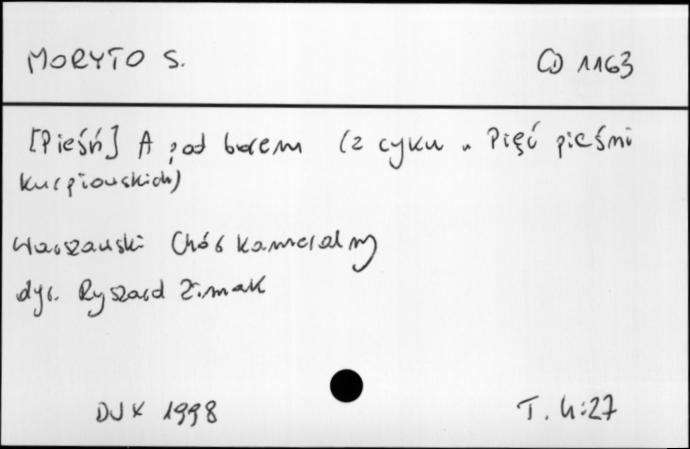 MORYTO S.
CD 1163
[Pieśń] A pod borem (z cyku „ Pięć pieśni
kurpiowskich)
Warszawski Chór kameralny
dyr. Ryszard Zimak
DUX 1998
T. 4:27